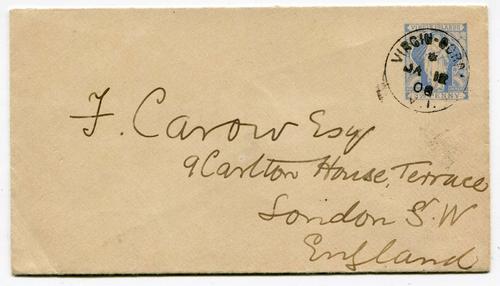 VIRGIN ISLANDS
VIRGIN-GORDA
JA 12
06
V.I.
PENNY
F. Carow Esq
9 Carlton House, Terrace
London S.W
England